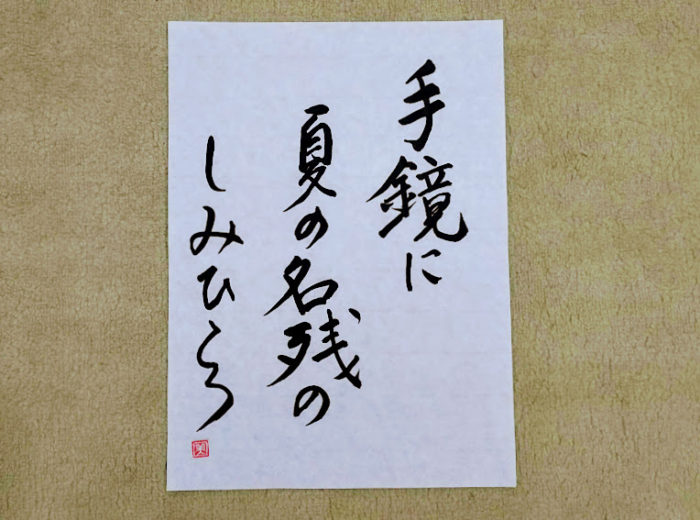 手鏡に
夏の名残の
しみひとつ